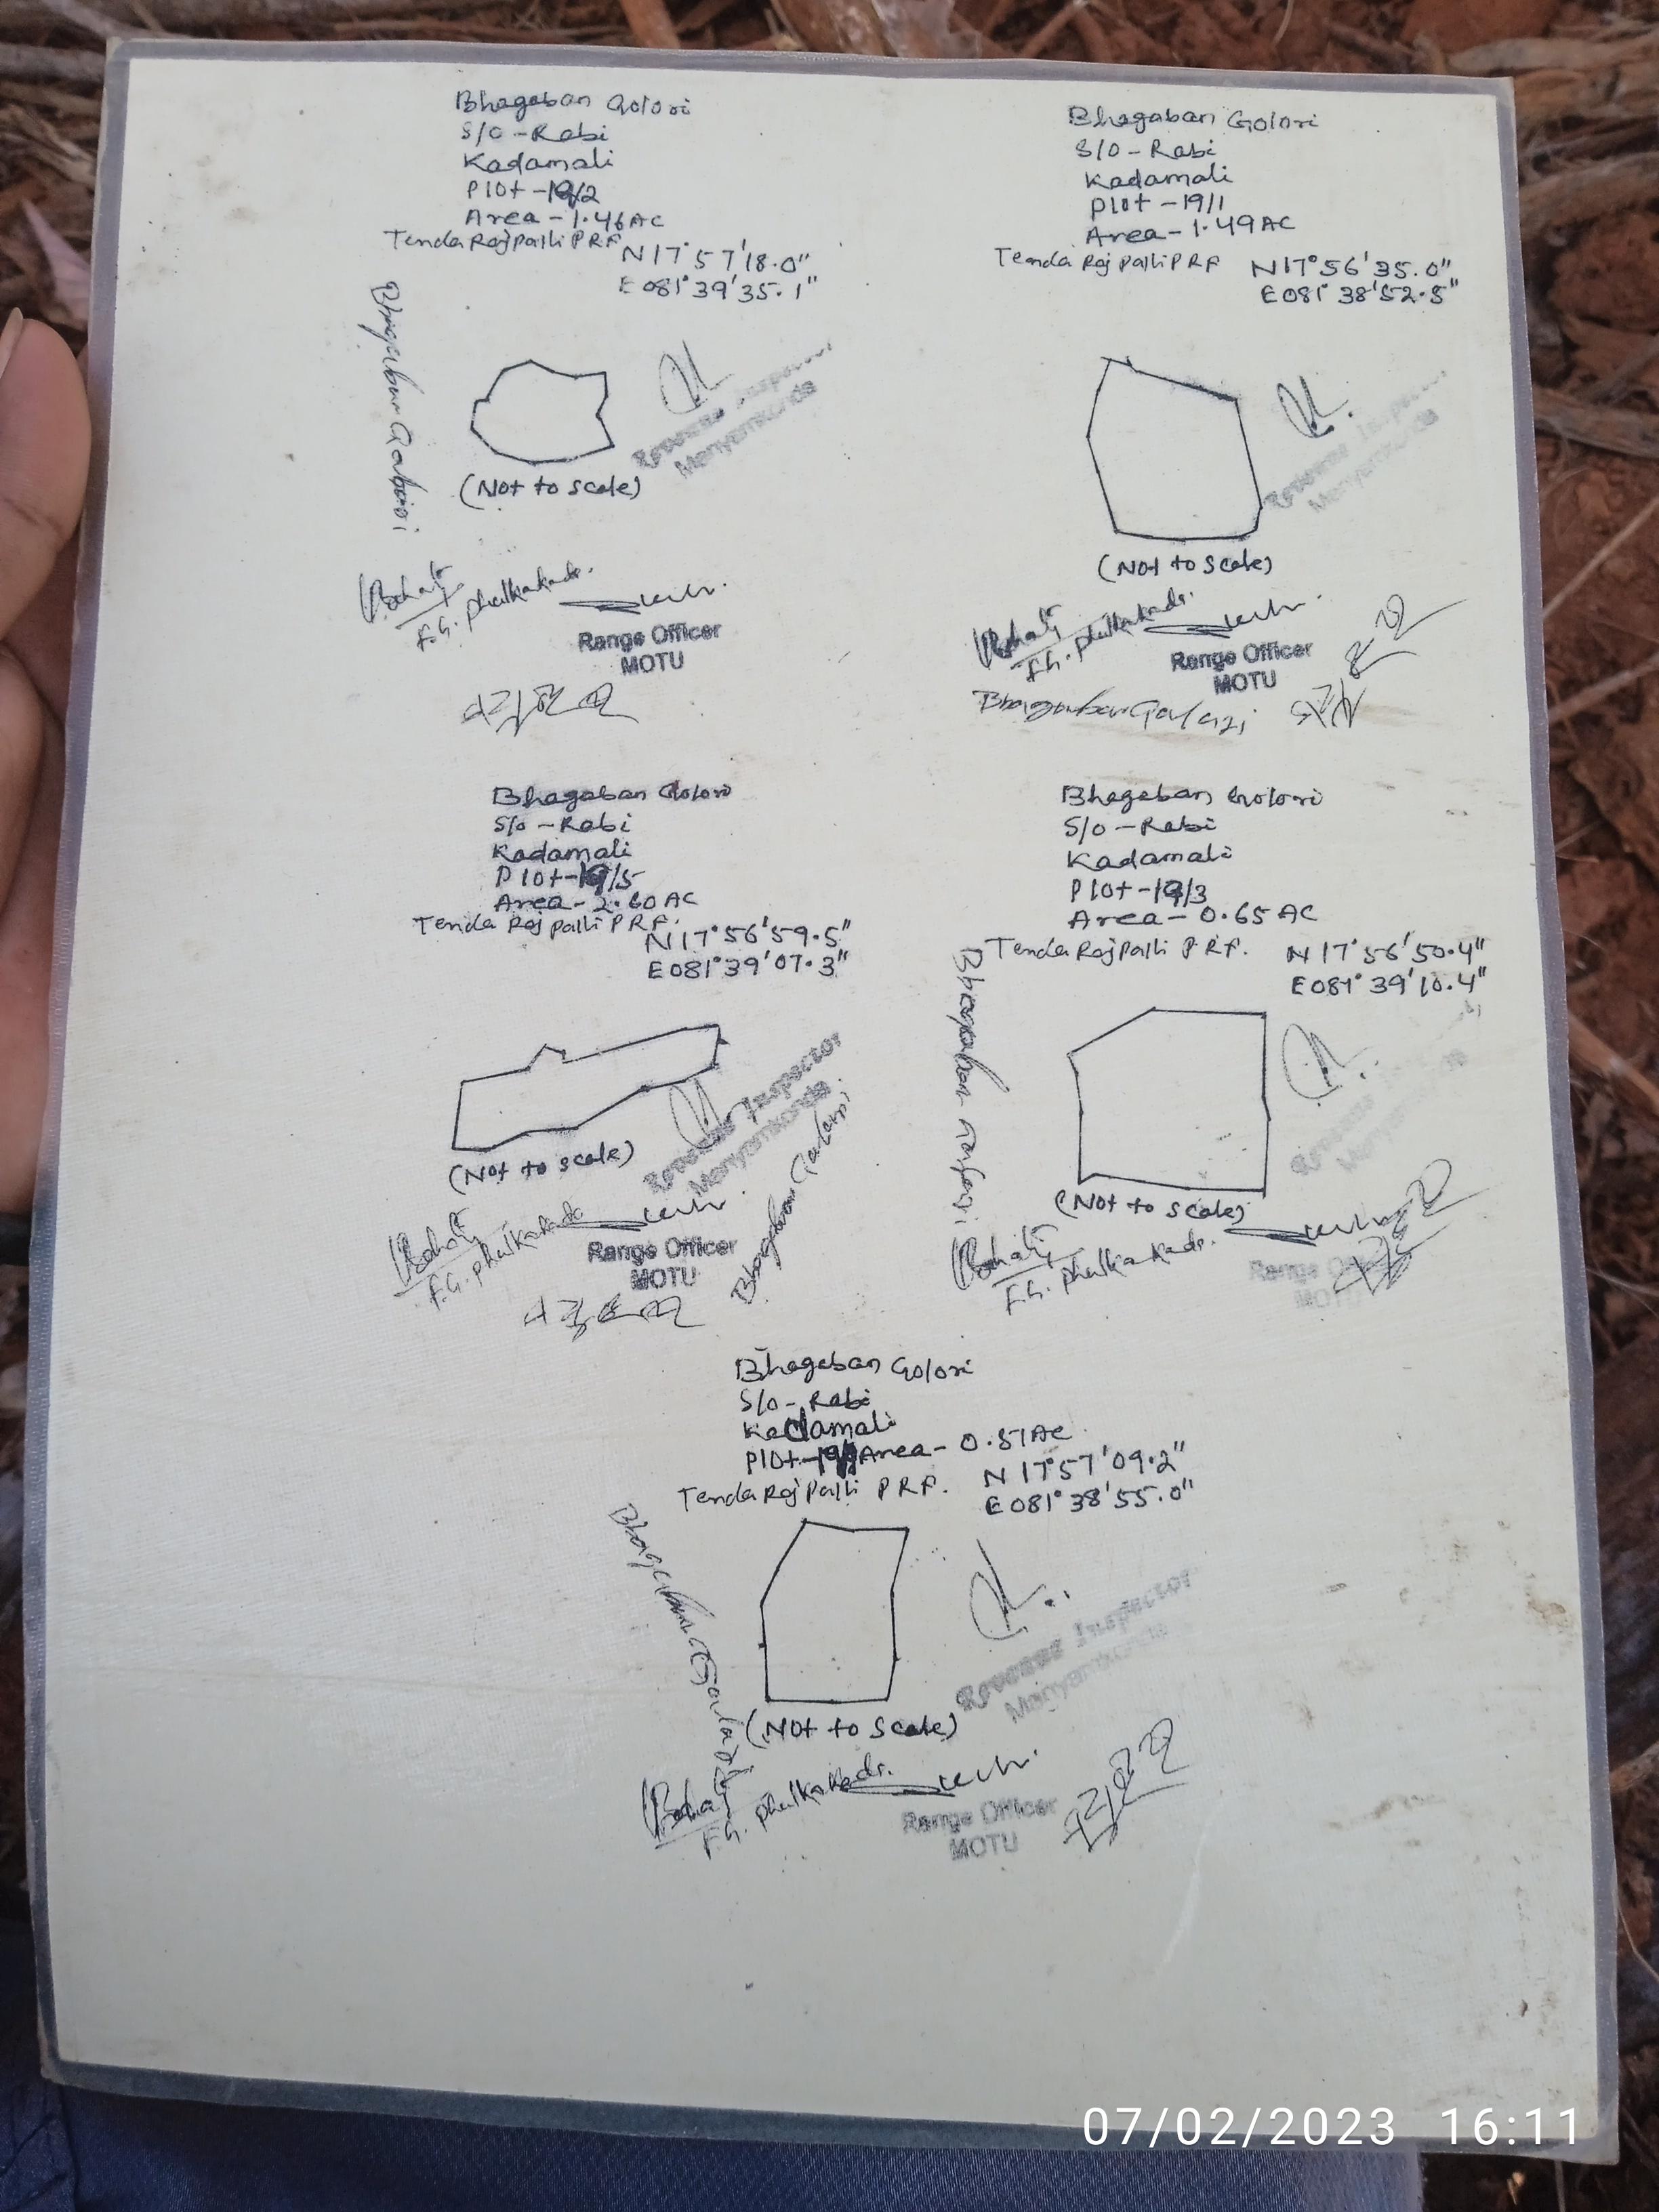 Bhagaban Golori
S/O - Rabi
Kadamali
Plot - 19/2
Area - 1.46 AC
Tenda Rajpalli PRF
N 17° 57' 18.0"
E 081° 39' 35.1"
(Not to Scale)
F.G. Phulkakada.
Range Officer
MOTU
Bhagaban Golori
S/O - Rabi
Kadamali
Plot - 19/1
Area - 1.49 AC
Tenda Rajpalli PRF
N 17° 56' 35.0"
E 081° 38' 52.5"
Revenue Inspector
(Not to Scale)
F.G. Phulkakada.
Range Officer
MOTU
Bhagaban Golori
S/O - Rabi
Kadamali
Plot - 19/5
Area - 2.60 AC
Tenda Rajpalli PRF.
N 17° 56' 59.5"
E 081° 39' 07.3"
Revenue Inspector
(Not to Scale)
F.G. Phulkakada
Range Officer
MOTU
Bhagaban Golori
S/O - Rabi
Kadamali
Plot - 19/3
Area - 0.65 AC
Tenda Rajpalli PRF.
N 17° 56' 50.4"
E 081° 39' 10.4"
(Not to Scale)
F.G. Phulkakada.
Range Officer
MOTU
Bhagaban Golori
S/O - Rabi
Kadamali
Area - 0.51 AC
Tenda Rajpalli PRF.
N 17° 57' 09.2"
E 081° 38' 55.0"
Revenue Inspector
(Not to Scale)
F.G. Phulkakada.
Range Officer
MOTU
07/02/2023 16:11